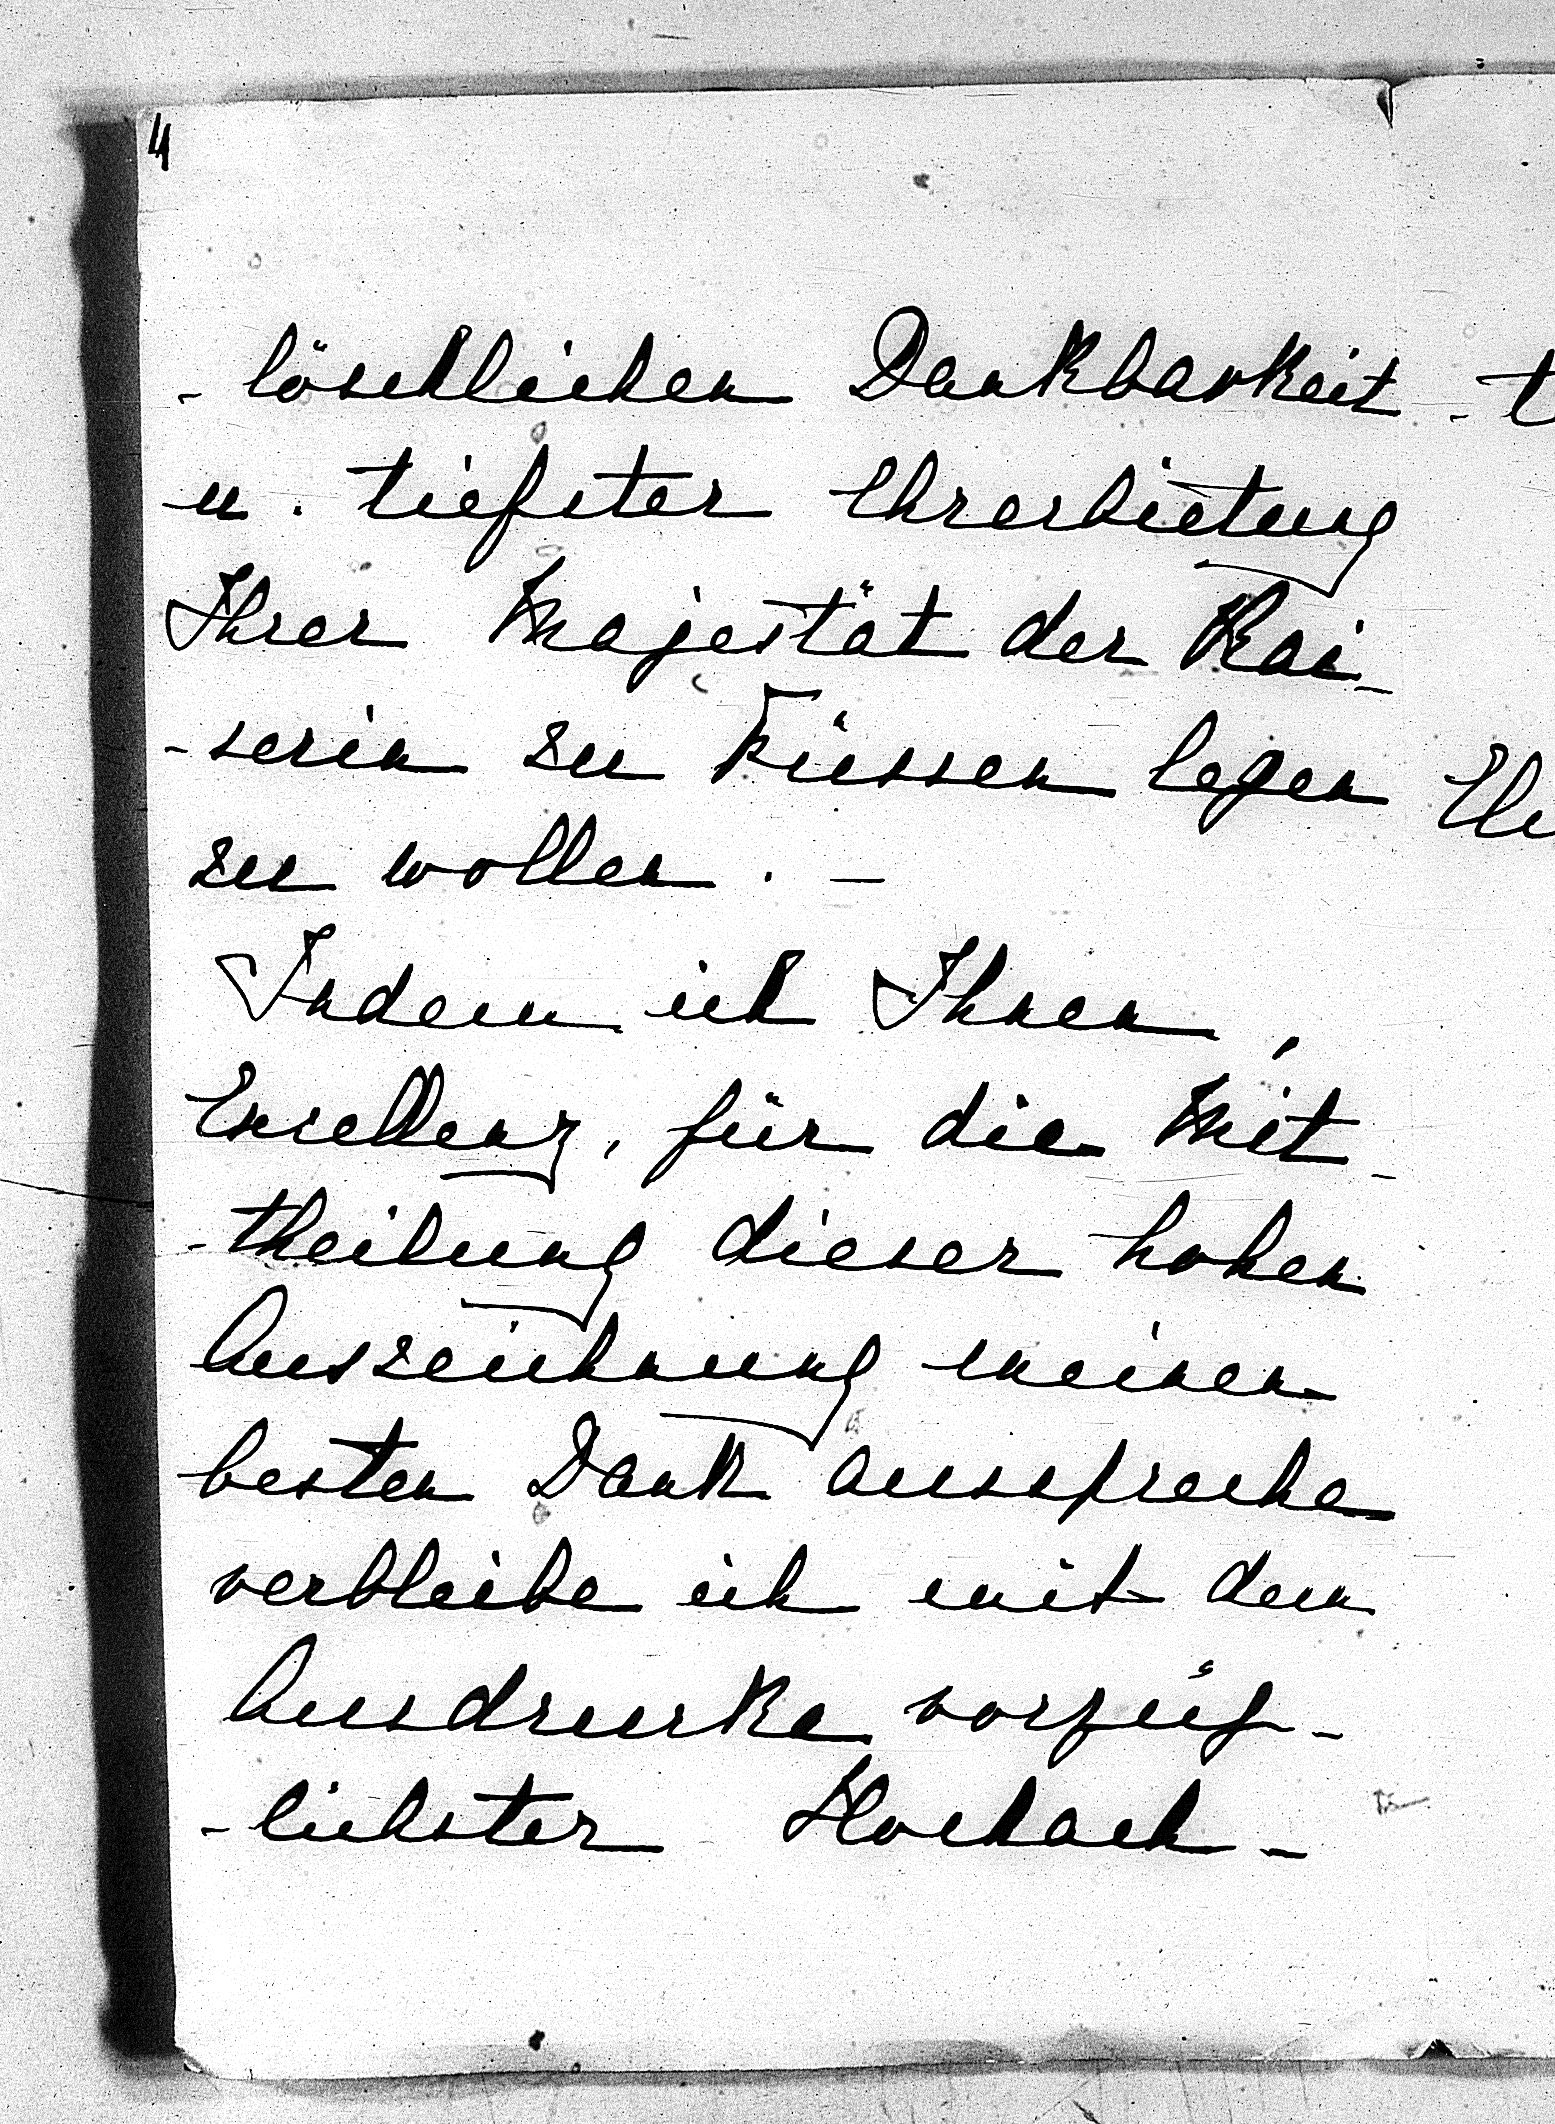 4
-löschlichen Dankbarkeit
u. tiefster Ehrerbietung
Ihrer Majestät der Kai-
-serin zu Füssen legen
zu wollen. —
Indem ich Ihnen,
Excellenz, für die Mit-
-theilung dieser hohen
Auszeichnung meinen
besten Dank ausspreche
verbleibe ich mit dem
Ausdrucke vorzüg-
-lichster Hochach-